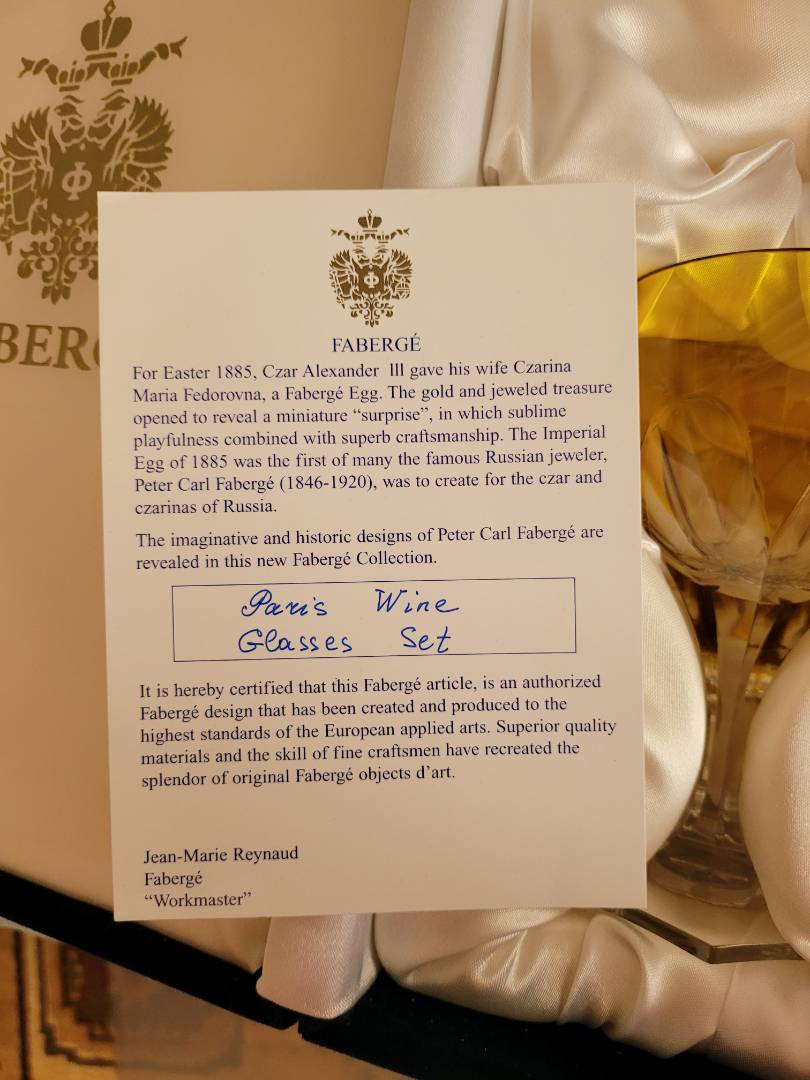 BER
FABERGÉ
For Easter 1885, Czar Alexander III gave his wife Czarina
Maria Fedorovna, a Fabergé Egg. The gold and jeweled treasure
opened to reveal a miniature “surprise”, in which sublime
playfulness combined with superb craftsmanship. The Imperial
Egg of 1885 was the first of many the famous Russian jeweler,
Peter Carl Fabergé (1846-1920), was to create for the czar and
czarinas of Russia.
The imaginative and historic designs of Peter Carl Fabergé are
revealed in this new Fabergé Collection.
Paris Wine
Glasses Set
It is hereby certified that this Fabergé article, is an authorized
Fabergé design that has been created and produced to the
highest standards of the European applied arts. Superior quality
materials and the skill of fine craftsmen have recreated the
splendor of original Fabergé objects d’art.
Jean-Marie Reynaud
Fabergé
“Workmaster”